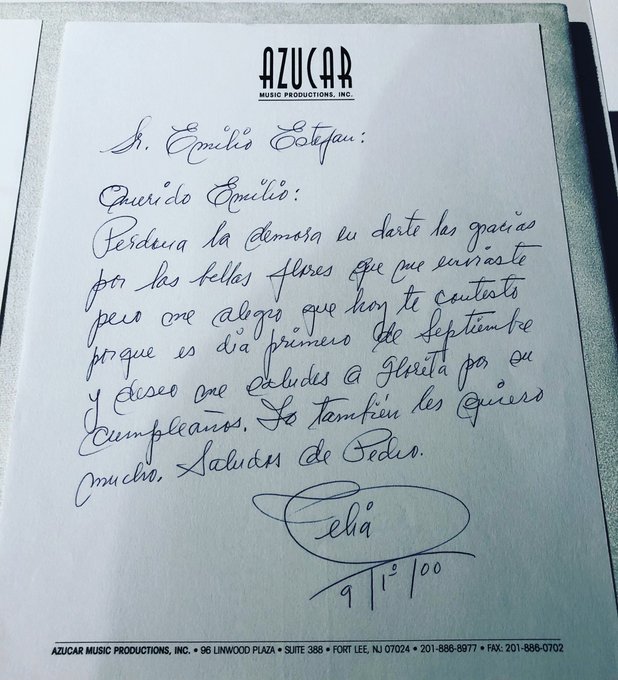 AZUCAR
MUSIC PRODUCTIONS, INC.
Sr. Emilio Estefan:
Querido Emilio:
Perdona la demora en darte las gracias
por las bellas flores que me enviaste
pero me alegro que hoy te contesto
porque es dia primero de Septiembre
y deseo me saludes a Glorita por su
cumpleaños. Yo también les quiero
mucho. Saludos de Pedro.
Celia
9/1º/00
AZUCAR MUSIC PRODUCTIONS, INC. • 96 LINWOOD PLAZA • SUITE 388 • FORT LEE, NJ 07024 • 201-886-8977 • FAX: 201-886-0702